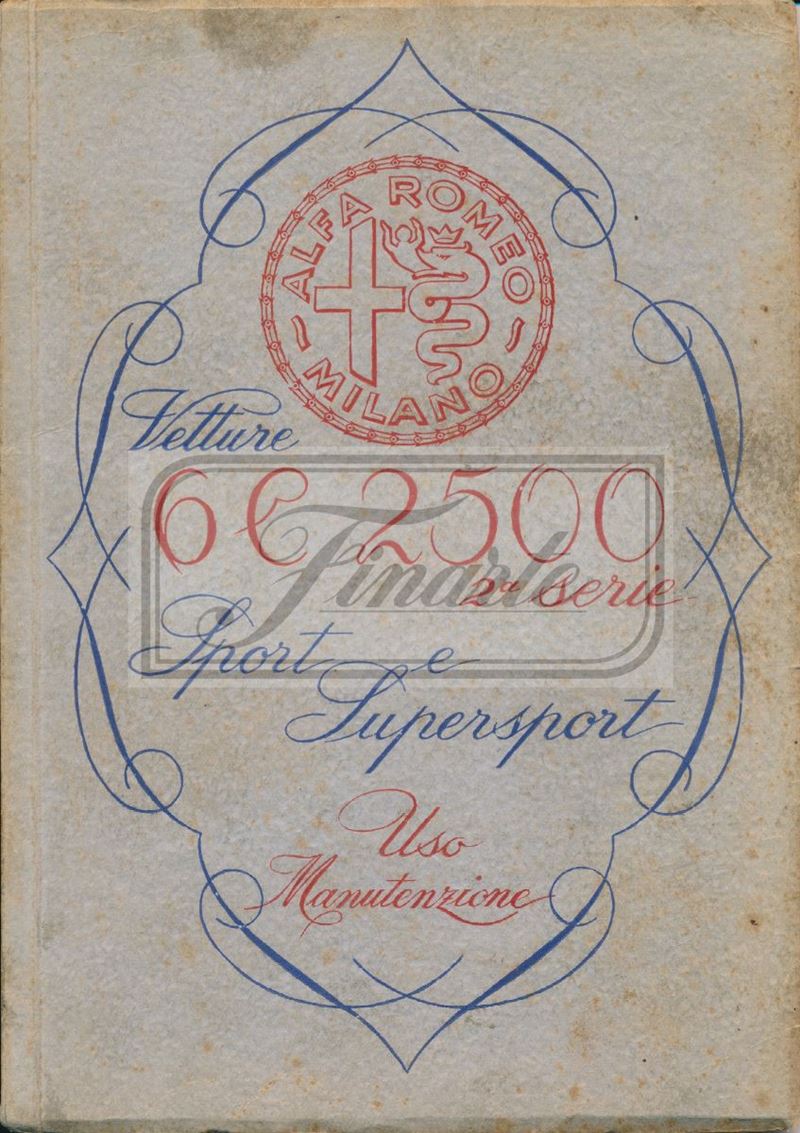 ALFA ROMEO
MILANO
Vetture
6C 2500
Finarte
2ª serie
Sport e
Supersport
Uso
Manutenzione